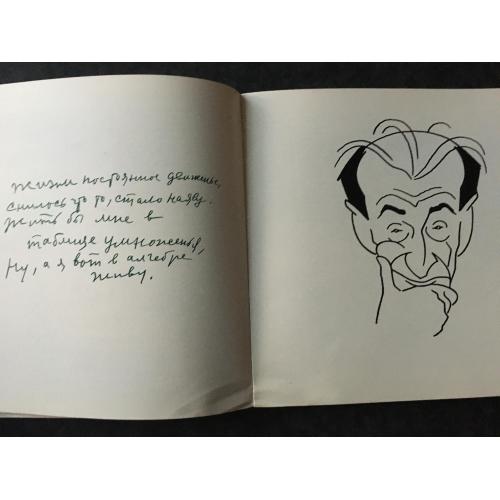 Жизни постоянное движенье,
снилось что то, стало наяву.
Жить бы мне в
таблице умноженья,
Ну, а я вот в алгебре
живу.